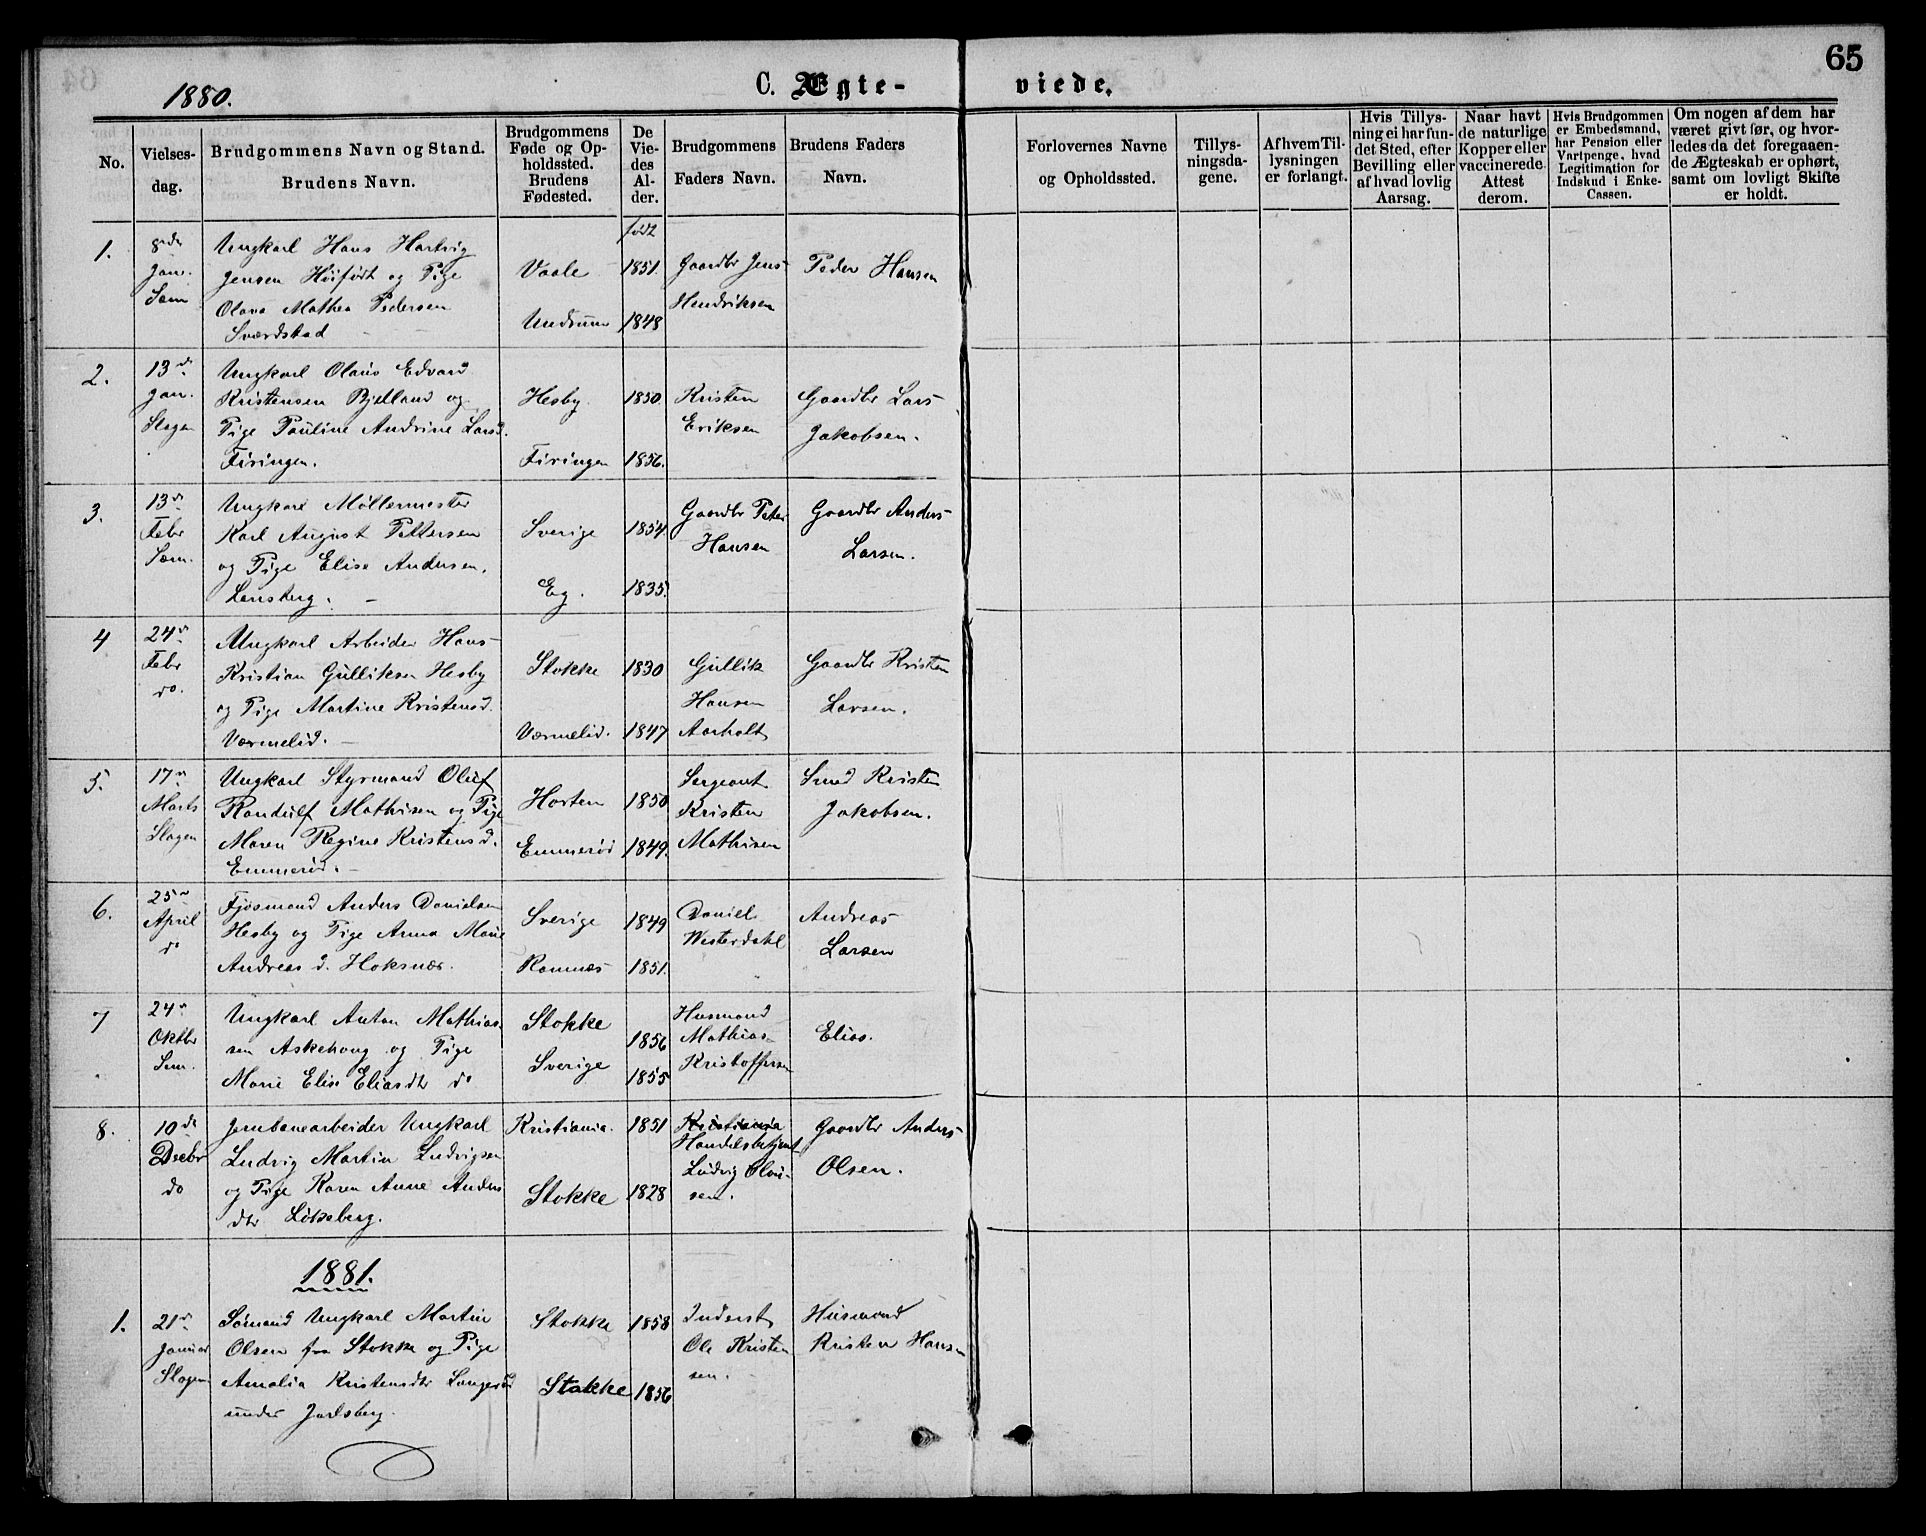 65
1880.
C. Ægte- viede.
No.
Vielses-
dag.
Brudgommens Navn og Stand.
Brudens Navn.
Brudgommens
Føde og Op-
holdssted.
Brudens
Fødested.
De
Vie-
des
Al-
der.
Brudgommens
Faders Navn.
Brudens Faders
Navn.
Forlovernes Navne
og Opholdssted.
Tillys-
ningsda-
gene.
Af hvem Til-
lysningen
er forlangt.
Hvis Tillys-
ning ei har fun-
det Sted, efter
Bevilling eller
af hvad lovlig
Aarsag.
Naar havt
de naturlige
Kopper eller
vaccinerede.
Attest
derom.
Hvis Brudgommen
er Embedsmand,
har Pension eller
Vartpenge, hvad
Legitimation for
Indskud i Enke-
Cassen.
Om nogen af dem har
været givt før, og hvor-
ledes da det foregaaen-
de Ægteskab er ophørt,
samt om lovligt Skifte
er holdt.
1.
8de
Jan.
Sem
Ungkarl Hans Hartvig
Jensen Høifødt og Pige
Olava Mathea Pedersen
Sværdstad
Vaale
Undrum
født
1851.
1848
Gaardbr Jens
Hendriksen
Peder Hansen
2.
13de
Jan.
Slagen
Ungkarl Olaus Edvard
Kristensen Bjelland og
Pige Pauline Andrine Larsd.
Firingen.
Hesby.
Firingen
1850.
1856.
Kristen
Eriksen
Gaardbr Lars
Jakobsen.
3.
13de
Febr
Sem.
Ungkarl Møllermester
Karl August Pettersen
og Pige Elise Andersen.
Lensberg.
Sverige
Eg.
1854.
1835.
Gaardbr Peter
Hansen
Gaardbr Anders
Larsen.
4
24de
Febr
do.
Ungkarl Arbeider Hans
Kristian Gulliksen Hesby
og Pige Martine Kristensd.
Værmelid.
Stokke
Værmelid.
1830
1847
Gullik
Hansen
Aarholt
Gaardbr Kristen
Larsen.
5.
17de
Marts
Slagen
Ungkarl Styrmand Oluf
Randulf Mathisen og Pige
Maren Regine Kristensd.
Emmerød.
Horten
Emmerød
1850
1849.
Sergeant
Kristen
Mathisen
Smed Kristen
Jakobsen.
6.
25de
April
do
Fjøsmand Anders Danielsen
Hesby og Pige Anna Marie
Andreasd. Hoksnær.
Sverige
Ramnæs
1849
1851.
Daniel
Westerdahl
Andreas
Larsen
7
24de
Oktbr
Sem.
Ungkarl Anton Mathias-
sen Askehoug og Pige
Marie Elise Eliasdtr do
Stokke
Sverige
1856
1855
Husmand
Mathias
Kristoffersen
Elias.
8.
10de
Decbr
do
Jernbanearbeider Ungkarl
Ludvig Martin Ludvigsen
og Pige Karen Anne Anders
dtr Løkeberg.
Kristiania.
Stokke
1851
1828
Kristiania
Handelsbetjent
Ludvig Olau-
sen.
Gaardbr Anders
Olsen.
1881.
1.
21de
Januar
Slagen
Sømand Ungkarl Martin
Olsen fra Stokke og Pige
Amalia Kristensdtr
under Jarlsberg.
Stokke
Stokke
1858
1856
Inderst
Ole Kristen
sen.
Husmand
Kristen Hansen